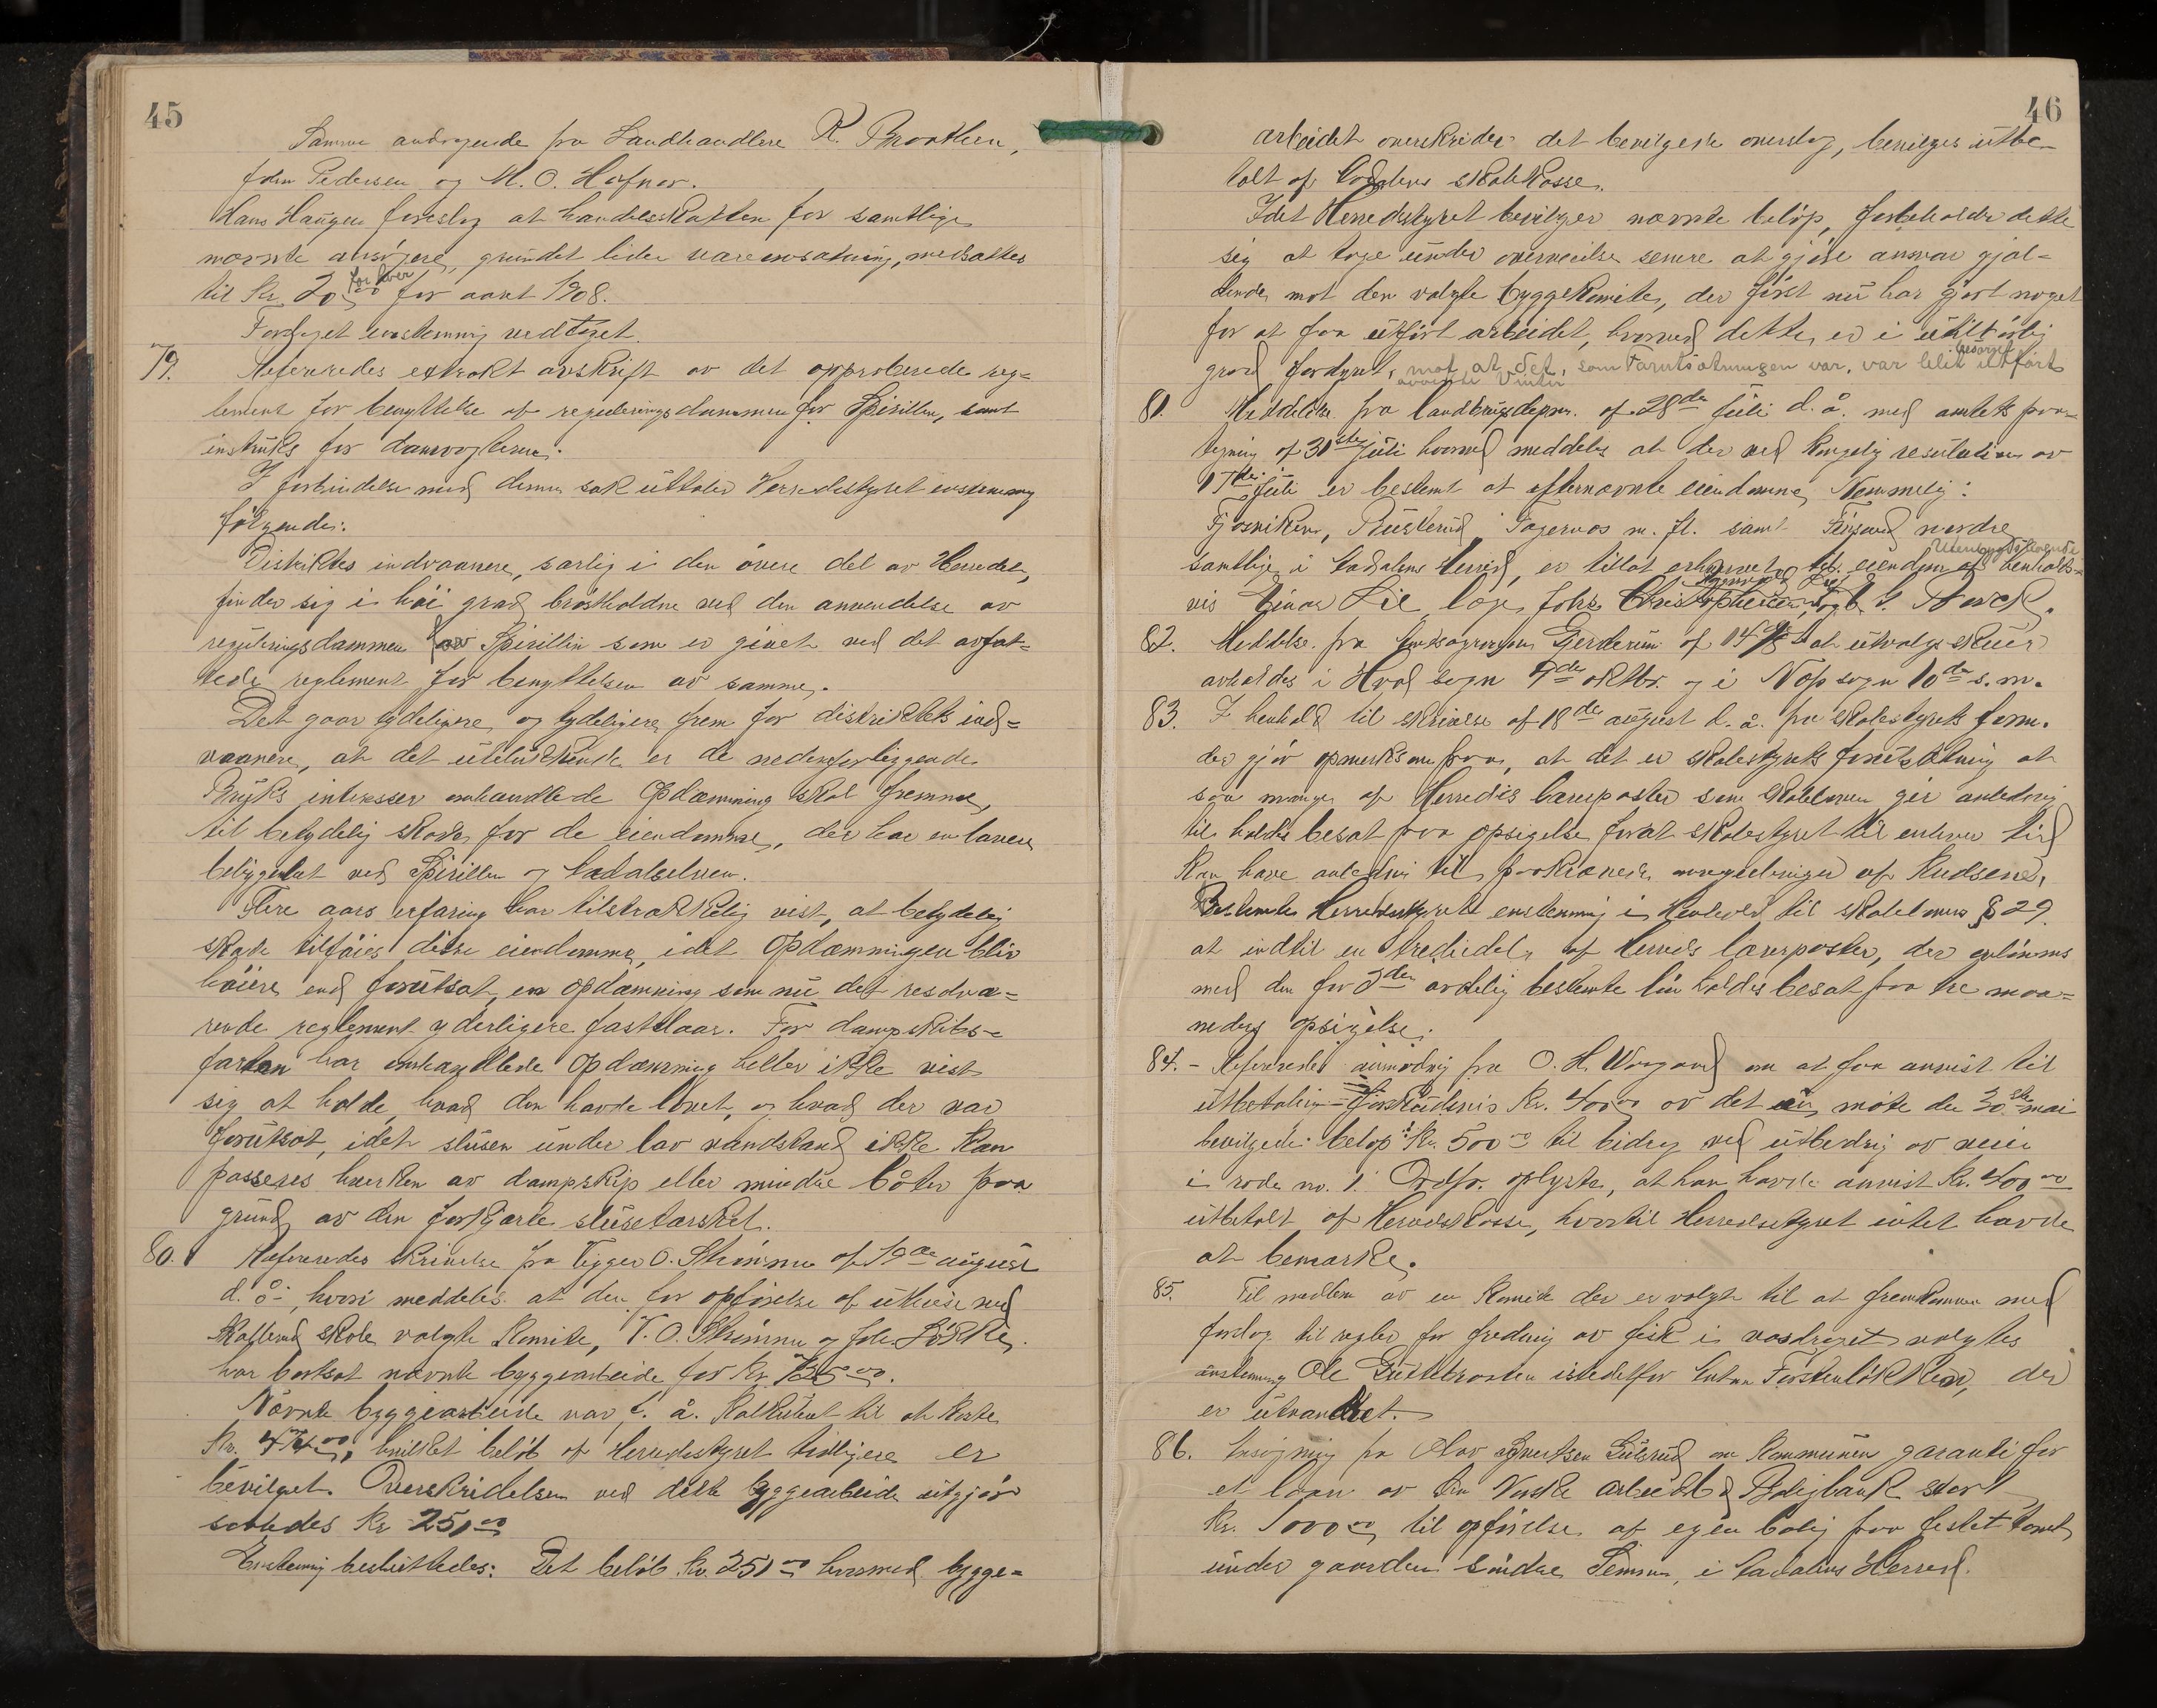 45
Samme andragende fra Landhandlere K. Braathen,
John Pedersen og M. O. Hafnor.
Hans Haugen foreslog at handelsskatten for samtlige
nævnte ansøgere, grundet liden vareomsætning, nedsattes
til Kr. 20.00 for hver for aaret 1908.
Forslaget enstemmig vedtaget.
79. Refereredes extrakt avskrift av det approberede reg-
lement for benyttelse af reguleringsdammen for Spirillen, samt
instruks for damvogteren.
I forbindelse med denne sak uttaler Herredstyret enstemmig
følgende:
Distriktes indvaanere, særlig i den øvere del av Herredet,
finder sig i høi grad brøstholdne ved den anvendelse av
reguleringsdammen for Spirillen som er givet ved det avfat-
tede reglement for benyttelsen av samme.
Det gaar tydeligere og tydeligere frem for distriktets ind-
vaanere, at det utelukkende er de nedenforliggende
Bruks interesser omhandlede Opdæmning skal fremme,
til betydelig skade for de eiendomme, der har en lavere
beliggenhet ved Spirillen og Aadalselven.
Flere aars erfaring har tilstrækkelig vist, at betydelig
skade tilføies disse eiendomme, idet Opdæmningen blir
høiere end forutsat, en opdæmning som nu det resolve-
rende reglement yderligere fastslaar. For dampskibs-
farten har omhandlede Opdæmning heller ikke vist
sig at holde, hvad den havde lovet, og hvad der var
forutsat, idet slusen under lav vandstand ikke kan
passeres hverken av dampskip eller mindre båter paa
grund av den forkjærte slusetærskel.
80. Refereredes skrivelse fra Viggo O. Strømmen af 19de august
d. å., hvori meddeles at den for opførelse af uthuse ved
skole valgte Komite, V. O. Strømmen og Johs. Løkke,
har bortsat nævnte byggearbeide for Kr. 725.00.
Nævnte byggearbeide var f. å. kalkulert til at koste
Kr. 474.00, hvilket beløb af Herredstyret tidligere er
bevilget. Overskridelsen ved dette byggearbeide utgjør
saaledes Kr 251.00
Enstemmig besluttedes: Det beløb Kr. 251.00 hvormed bygge-
46
arbeidet overskrider det bevilgede overslag, bevilges utbe-
talt af Aadalens skolekasse.
Idet Herredstyret bevilger nævnte beløp, forbeholder dette
sig at tage under overveielse senere at gjøre ansvar gjæl-
dende mot den valgte byggekomite, der først nu har gjort noget
for at faa utført arbeidet, hvorved dette er i utilbørlig
grad fordyret, mot at det, som forutsætningen var, var blit besørget utført
81. Meddelelse fra landbrugsdepm. af 28de juli d. å. med amtets paa-
tegning af 31te juli hvorved meddeles at der ved kongelig resolution av
17de juli er bestemt at efternævnte eiendomme, Nemmelig:
Fjosviken, Rusterud, Fagernes m. fl. samt nordre
samtlige i Aadalens Herred, er tillat erhvervet til eiendom af Utenbygdsboende henholds-
vis Einar Lie, Johs. Christophersen, og G. Torck.
82. Meddelelse fra Amtsagronom Gjerderum af 14/8 at utvalgsskuer
avholdes i Hval sogn 9de oktbr. og i Nøp sogn 10de s. m.
83. I henhold til skrivelse af 18de august d. å. fra skolestyrets form.
der gjør opmerksom paa, at det er skolestyrets forutsætning at
saa mange af Herredets lærerposter som skoleloven gir anledning
til holdes besat paa opsigelse forat skolestyret til enhver tid
kan have anledning til paakrævede omreguleringer af kredsene,
Bestemtes Herredsstyrets enstemmig i Henhold til skolelovens § 29
at indtil en trediedel af Herreds lærerposter, der avlønnes
med den for 3die avdeling bestemte løn holdes besat paa tre maa-
neders opsigelse.
84. - Refereredes anmodning fra O. H. Vaagaard om at faa anvist til
utbetaling forskudsvis Kr. 400.00 av det i møte den 30te mai
bevilgede beløp Kr. 500.00 til bidrag ved utbedring av veier
i rode no. 1. Ordfr. oplyste, at han havde anvist Kr. 400.00
utbetalt af Herredskasse, hvortil Herredsstyret intet havde
at bemærke.
85. Til medlem av en Komite der er valgt til at fremkomme med
forslag til regler for fredning av fisk i vasdraget valgtes
enstemmig Ole Gulbraaten istedetfor Anton Torstenløkken, der
er utvandret.
86. Ansøgning fra Olav Syvertsen Gulsrud om Kommunen garanti for
et laan av den Norske Arbeider & Boligbank stort
Kr. 1000.00 til opførelse af egen bolig paa festet tomt
under gaarden søndre Semmen, i Aadalens Herred.